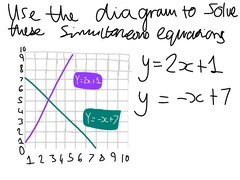 Use the diagram to solve
these simultaneous equations
y=2x+1
y = -x+7
10
9
8
7
6
5
4
3
2
1
y=2x+1
y=-x+7
1 2 3 4 5 6 7 8 9 10